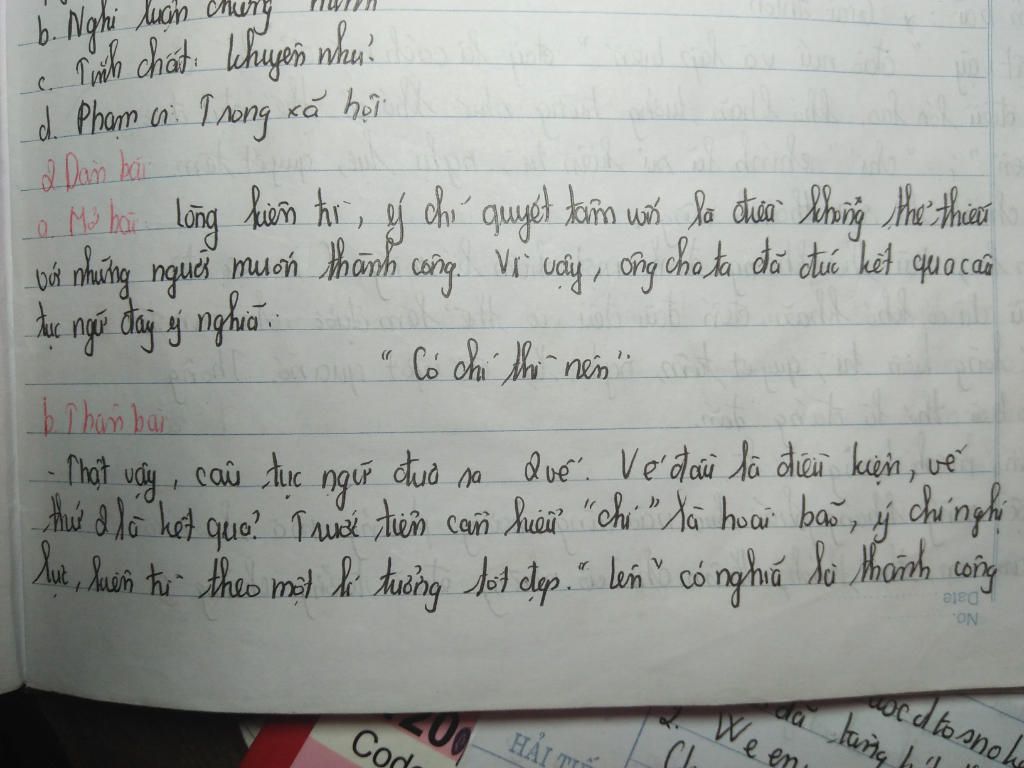 b. Nghị luận chứng minh
c. Tính chất: khuyên nhủ
d. Phạm vi Trong xã hội
2 Dàn bài
a. Mở bài Lòng kiên trì, ý chí quyết tâm vốn là điều không thể thiếu
với những người muốn thành công. Vì vậy, ông cha ta đã đúc kết qua câu
tục ngữ đầy ý nghĩa:
"Có chí thì nên"
b Thân bài
- Thật vậy, câu tục ngữ đưa ra 2 vế. Vế đầu là điều kiện, vế
thứ 2 là kết quả. Trước tiên cần hiểu "chí" là hoài bão, ý chí nghị
lực, kiên trì theo một lí tưởng tốt đẹp. "Lên" có nghĩa là thành công
Date
No.
20
Code
HẢI TIẾ
đã từng
2. We en